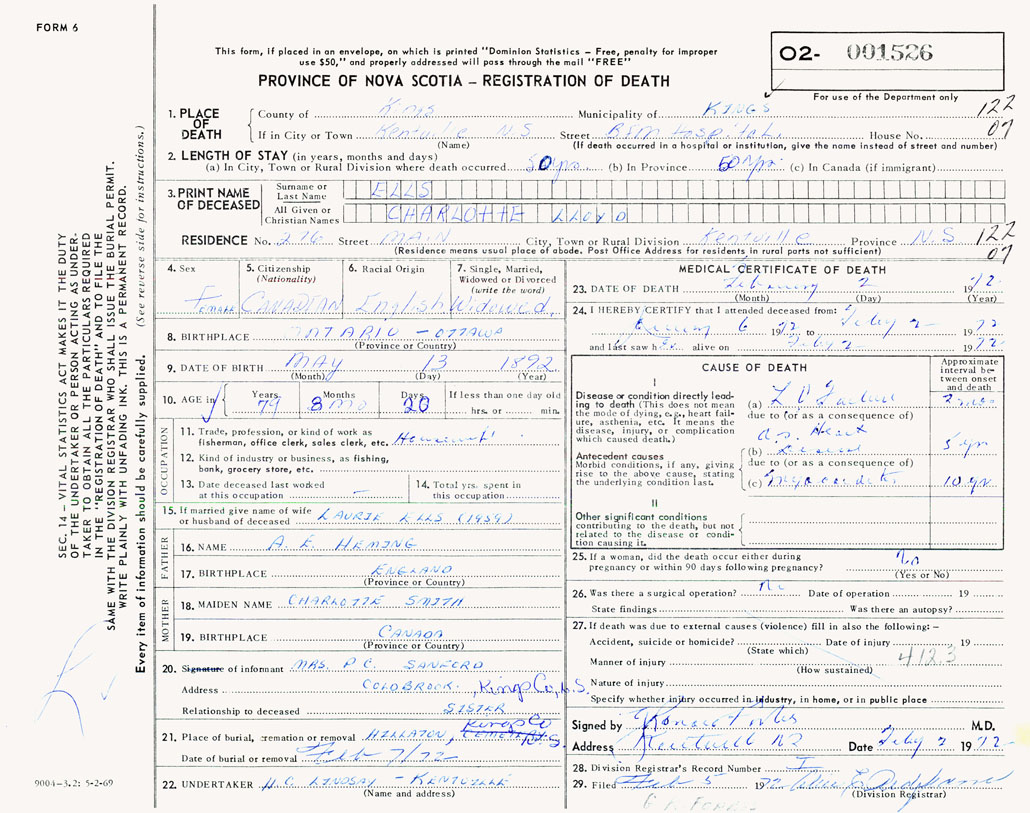 FORM 6
This form, if placed in an envelope, on which is printed "Dominion Statistics – Free, penalty for improper
use $50," and properly addressed will pass through the mail "FREE"
PROVINCE OF NOVA SCOTIA – REGISTRATION OF DEATH
O2- 001526
For use of the Department only
1. PLACE OF DEATH
County of Kings Municipality of KINGS 122
If in City or Town Kentville N.S Street BFM Hospital. House No. 07
(Name) (If death occurred in a hospital or institution, give the name instead of street and number)
2. LENGTH OF STAY (in years, months and days)
(a) In City, Town or Rural Division where death occurred 50 yrs. (b) In Province 50 yrs. (c) In Canada (if immigrant)
3. PRINT NAME OF DECEASED
Surname or Last Name ELLS
All Given or Christian Names CHARLOTTE LLOYD
RESIDENCE No. 276 Street MAIN City, Town or Rural Division Kentville Province N.S 122
(Residence means usual place of abode. Post Office Address for residents in rural parts not sufficient) 07
SEC. 14 – VITAL STATISTICS ACT MAKES IT THE DUTY
OF THE UNDERTAKER OR PERSON ACTING AS UNDER-
TAKER TO OBTAIN ALL THE PARTICULARS REQUIRED
IN THE "REGISTRATION OF DEATH" AND TO FILE THE
SAME WITH THE DIVISION REGISTRAR WHO SHALL ISSUE THE BURIAL PERMIT.
WRITE PLAINLY WITH UNFADING INK. THIS IS A PERMANENT RECORD.
Every item of information should be carefully supplied. (See reverse side for instructions.)
4. Sex Female
5. Citizenship (Nationality) CANADIAN
6. Racial Origin English
7. Single, Married, Widowed or Divorced (write the word) Widowed
8. BIRTHPLACE ONTARIO – OTTAWA
(Province or Country)
9. DATE OF BIRTH MAY 13 1892
(Month) (Day) (Year)
10. AGE in Years 79 Months 8 mo Days 20 If less than one day old
hrs. or min.
OCCUPATION
11. Trade, profession or kind of work as
fisherman, office clerk, sales clerk, etc.
12. Kind of industry or business, as fishing,
bank, grocery store, etc.
13. Date deceased last worked
at this occupation –
14. Total yrs. spent in
this occupation
15. If married give name of wife
or husband of deceased LAURIE ELLS (1959)
FATHER
16. NAME A. E. HEMING
17. BIRTHPLACE ENGLAND
(Province or Country)
MOTHER
18. MAIDEN NAME CHARLOTTE SMITH
19. BIRTHPLACE CANADA
(Province or Country)
20. Signature of informant MRS. P.C. SANFORD
Address COLDBROOK, Kings Co, N.S.
Relationship to deceased SISTER
21. Place of burial, cremation or removal HILLATON, Kings Co N.S.
Date of burial or removal Feb 7/72
22. UNDERTAKER H.C. LINDSAY – KENTVILLE
(Name and address)
9004-3.2: 5-2-69
MEDICAL CERTIFICATE OF DEATH
23. DATE OF DEATH February 2 1972.
(Month) (Day) (Year)
24. I HEREBY CERTIFY that I attended deceased from:
6 1972 to Feby 2 1972
and last saw her alive on Feby 2 1972
CAUSE OF DEATH
Approximate interval between onset and death
I
Disease or condition directly lead-
ing to death (This does not mean
the mode of dying, e.g., heart fail-
ure, asthenia, etc. It means the
disease, injury, or complication
which caused death.)
(a) L V Failure
due to (or as a consequence of)
a.s. Heart
Antecedent causes
Morbid conditions, if any, giving
rise to the above cause, stating
the underlying condition last.
(b) Disease 5 yrs
due to (or as a consequence of)
(c) 10 yrs
II
Other significant conditions
contributing to the death, but not
related to the disease or condi-
tion causing it.
25. If a woman, did the death occur either during
pregnancy or within 90 days following pregnancy? No
(Yes or No)
26. Was there a surgical operation? No Date of operation 19
State findings Was there an autopsy?
27. If death was due to external causes (violence) fill in also the following: –
Accident, suicide or homicide? Date of injury 19
(State which)
Manner of injury 412.3
(How sustained)
Nature of injury
Specify whether injury occurred in industry, in home, or in public place
Signed by M.D.
Address Kentville NS Date Feby 2 1972
28. Division Registrar's Record Number
29. Filed Feb 5 1972
(Division Registrar)